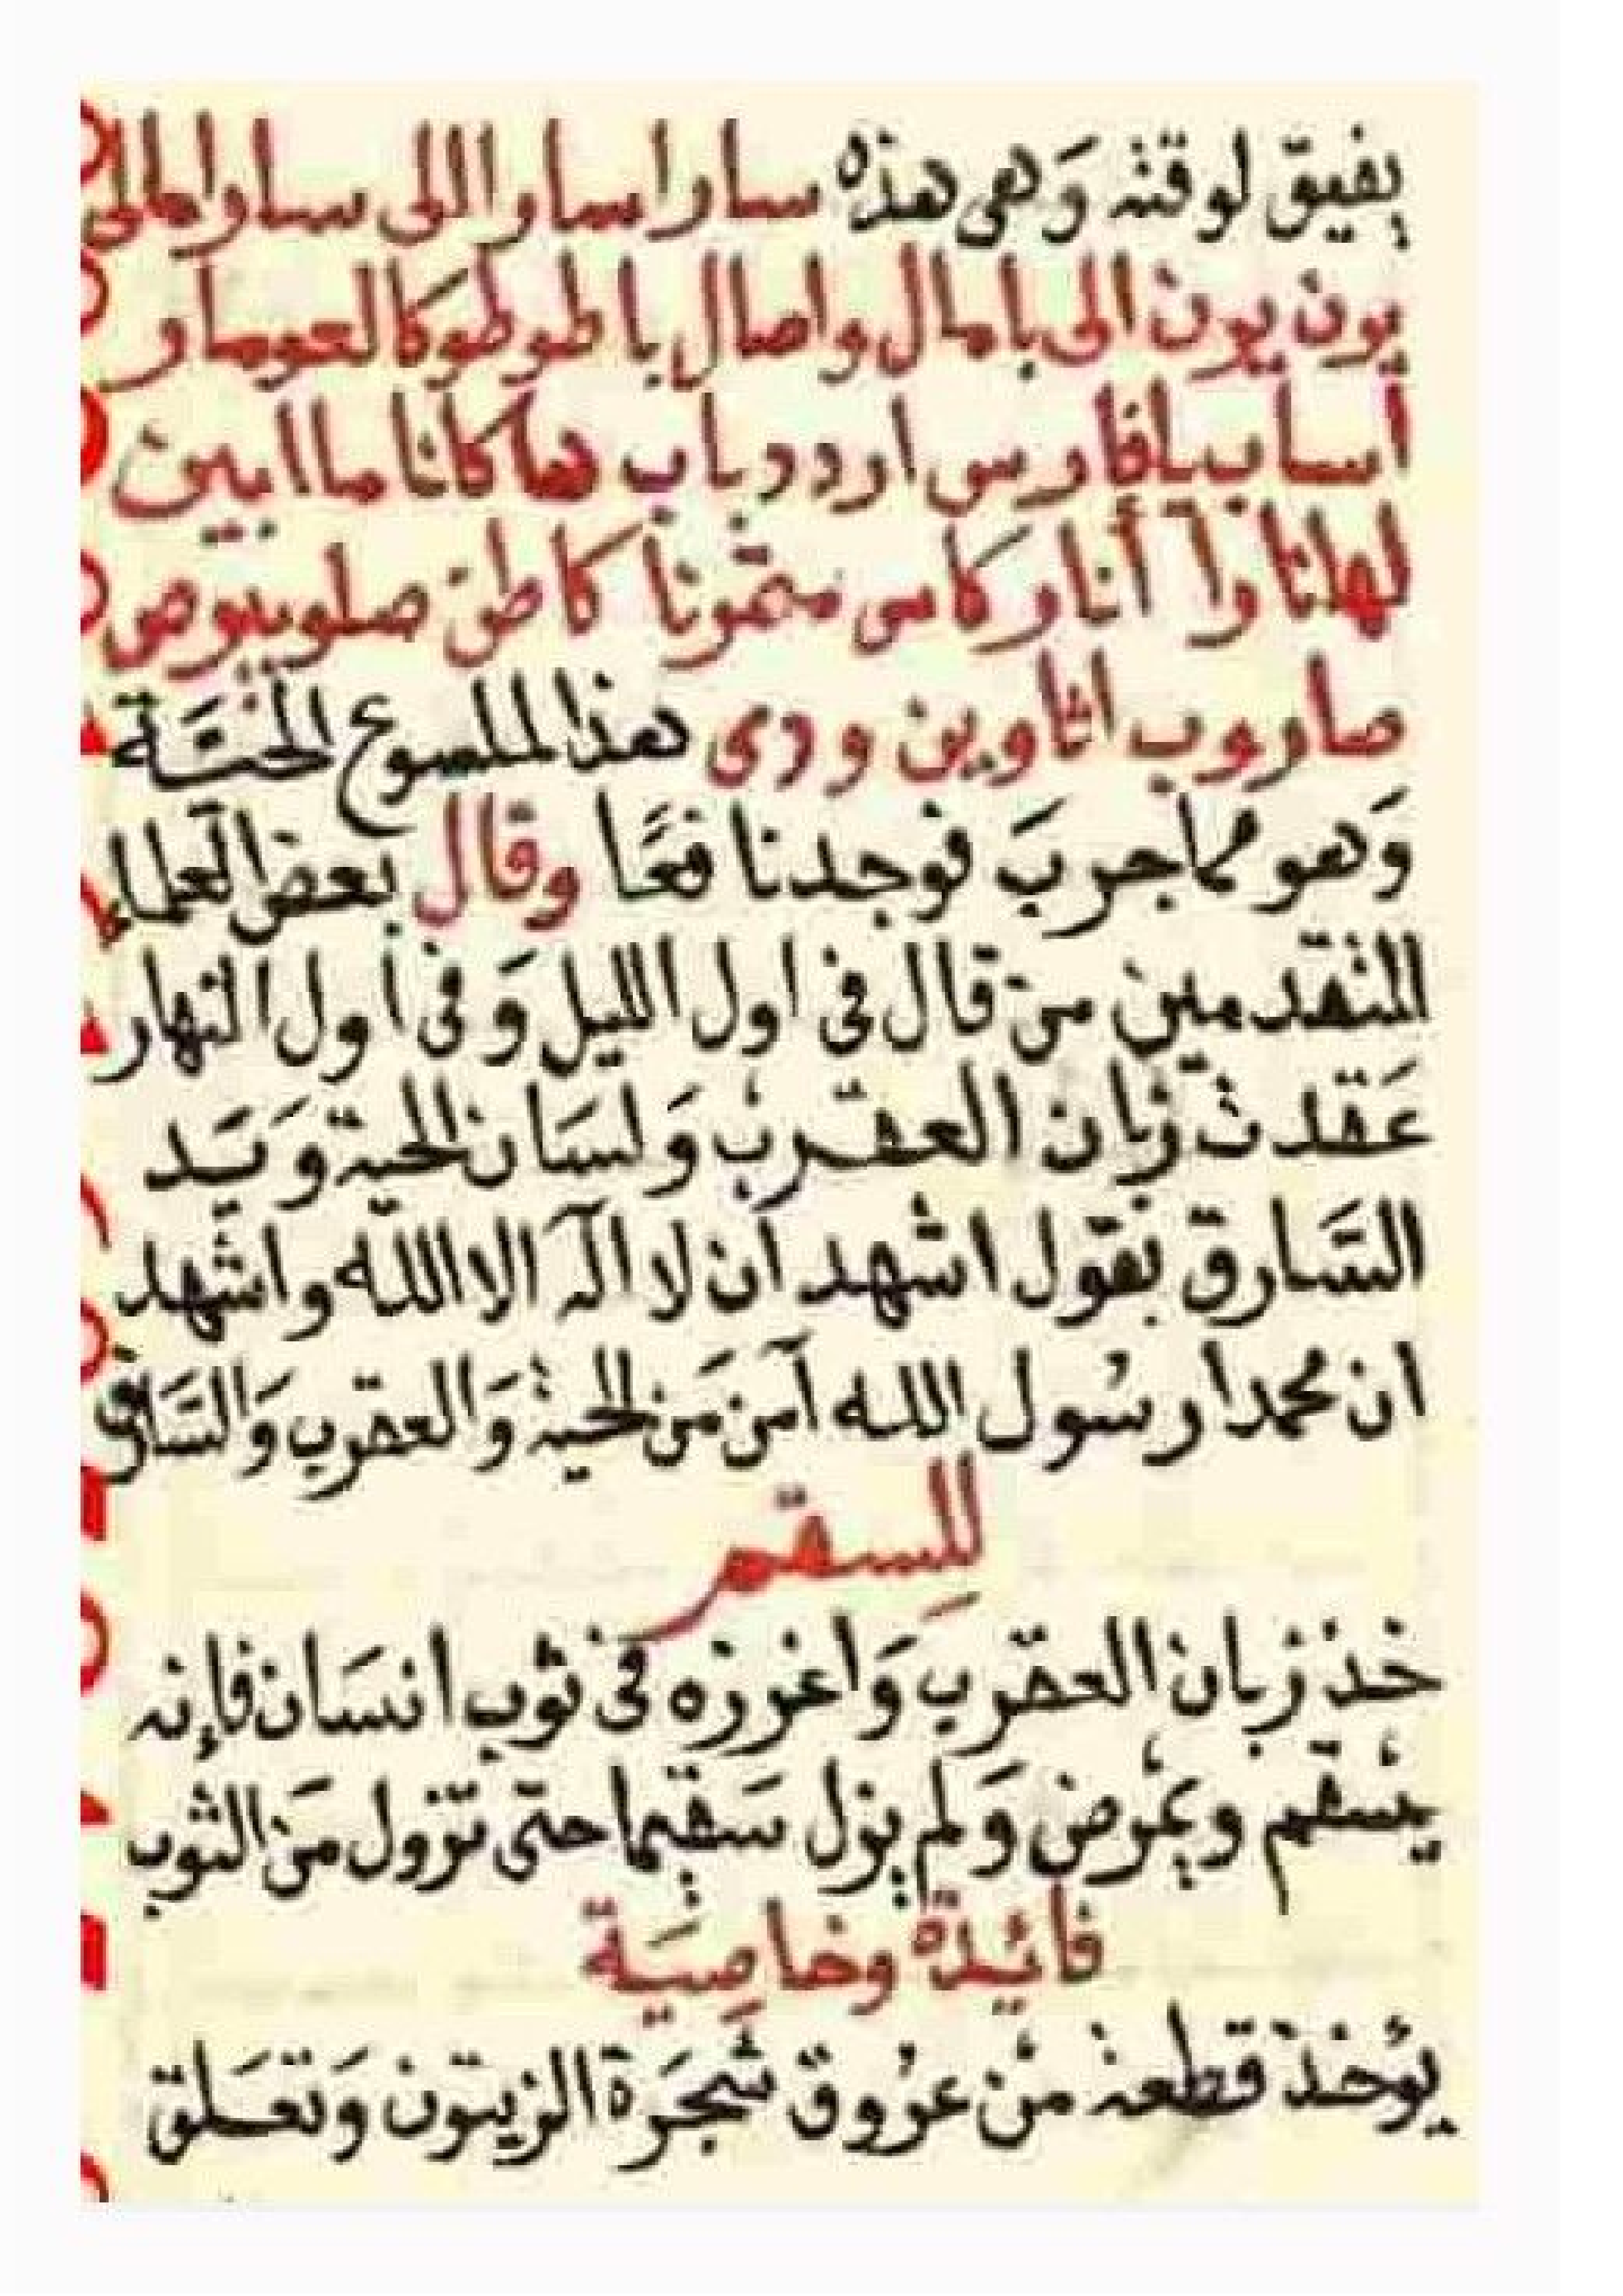 يفيق لوقته وَهى هذه سارا سارا اللى ساوا ملل
يون يون الى با مال واصال با طوطو كالعوساو
أساب يافا رس ارددباب هما كانا ما ابين
لهلثا وا أنار كاس منموناً كاطن صلوبيوص
صاروب اثاوين ودى هذا للملسوع الحيَّة
وَهو مما جربَ فوجدنا فعًا وقال بعض العلماء
المتقدمين من قال فى اول الليل وَفى اول النهار
عَقدت زبان العقرب وَلسَان الحية وَيَد
السَّارق بقول اشهد ان لا اله الا الله واشهد
ان محمدا رسُول الله آمن مَن الحية وَالعقرب وَالسَّارق
لِلسقم
خذ زبان العقرب وَاغرزه فى ثوب انسَان فإنه
يسْقم ويمْرض وَلم يزل سَقيما حتى تزول مَن الثوب
فائدة وخاصِيَة
يؤخذ قطعة من عرُوق شجَرَة الزيتون وَتعَلق